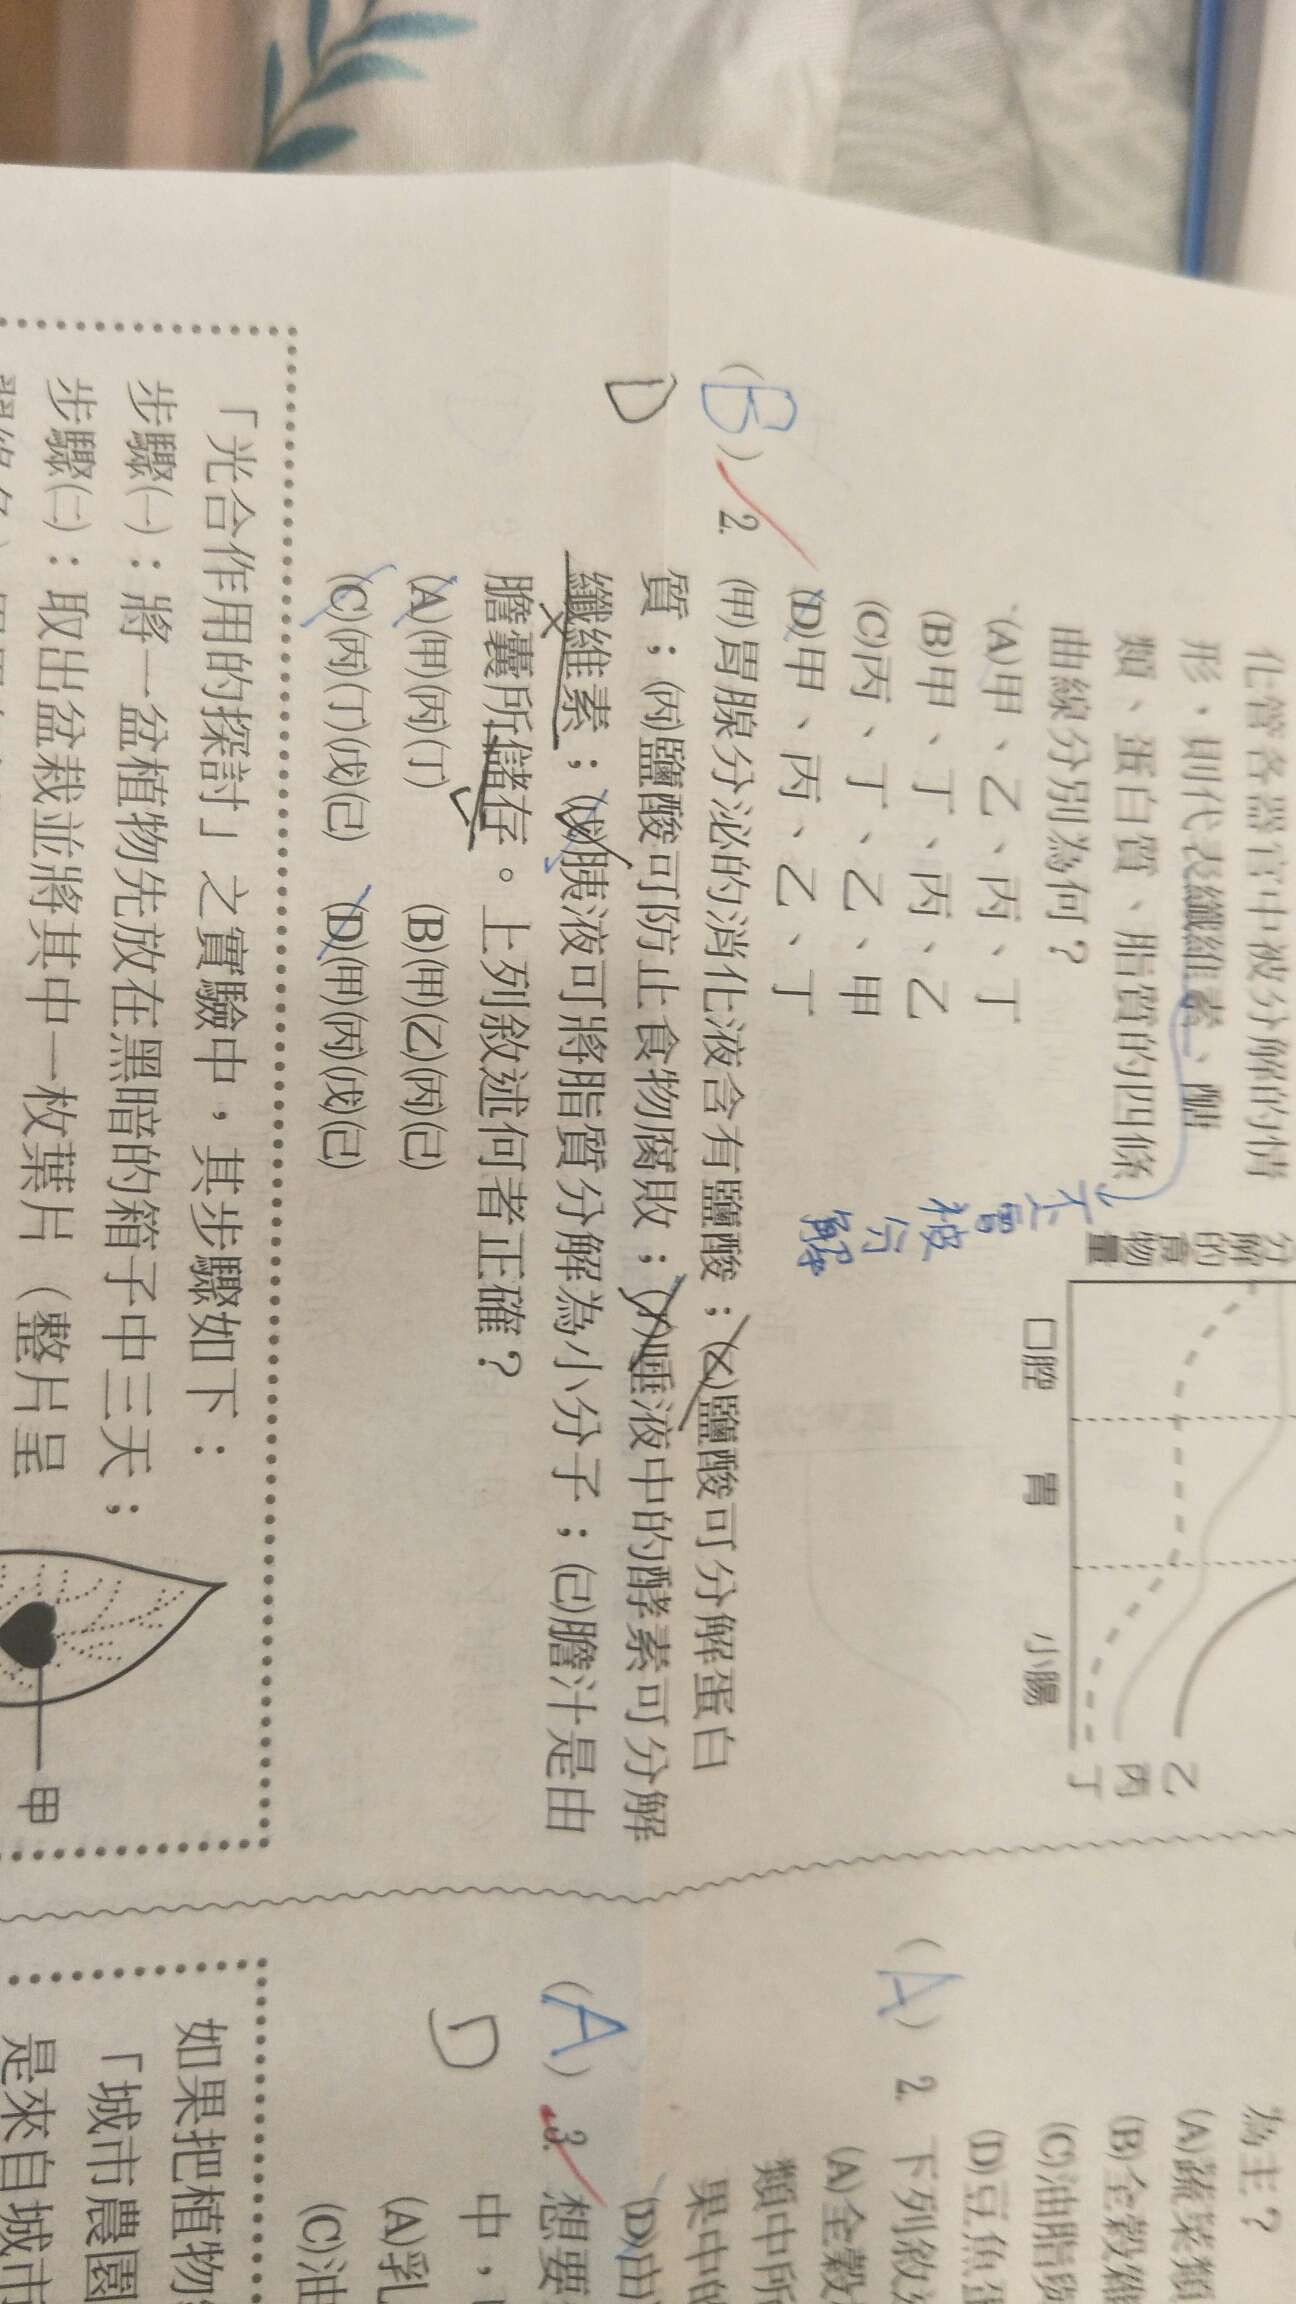 化管各器官中被分解的情
形，則代表纖維素、醣
類、蛋白質、脂質的四條
曲線分別為何？
(A)甲、乙、丙、丁
(B)甲、丁、丙、乙
(C)丙、丁、乙、甲
(D)甲、丙、乙、丁
不需
被
分
解
分
解
的
食
物
量
口腔 胃 小腸
乙
丙
丁
(B) 2. (甲)胃腺分泌的消化液含有鹽酸；(乙)鹽酸可分解蛋白
D
質；(丙)鹽酸可防止食物腐敗；(丁)唾液中的酵素可分解
纖維素；(戊)胰液可將脂質分解為小分子；(己)膽汁是由
膽囊所儲存。上列敘述何者正確？
(A)(甲)(丙)(丁) (B)(甲)(乙)(丙)(己)
(C)(丙)(丁)(戊)(己) (D)(甲)(丙)(戊)(己)
「光合作用的探討」之實驗中，其步驟如下：
步驟(一)：將一盆植物先放在黑暗的箱子中三天；
步驟(二)：取出盆栽並將其中一枚葉片（整片呈
甲
為主？
(A)蔬菜類
(B)全穀雜
(C)油脂
(D)豆魚蛋
(A) 2. 下列敘
(A)全穀
類中所
果中的
(D)由
(A) 3. 想要
D
中，
(A)乳
(C)油
如果把植物
「城市農園
是來自城市